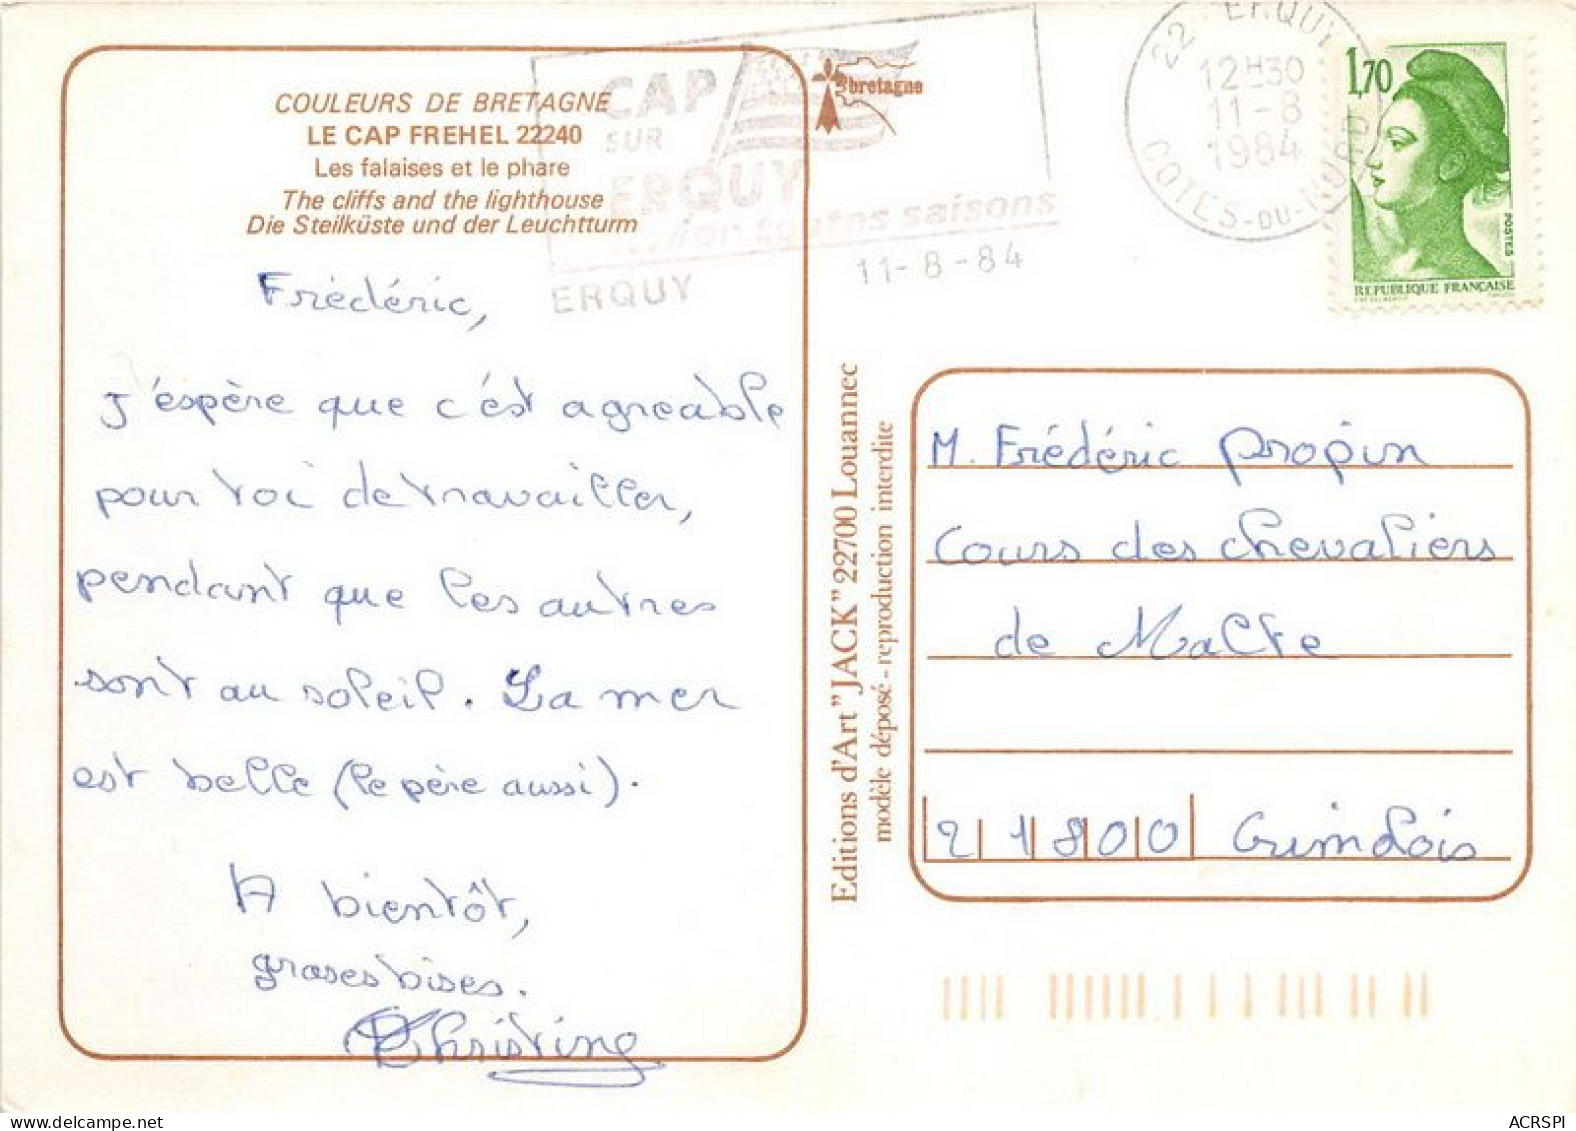 COULEURS DE BRETAGNE
LE CAP FREHEL 22240
Les falaises et le phare
The cliffs and the lighthouse
Die Steilküste und der Leuchtturm
Frédéric,
J'espère que c'est agreable
pour toi de travailler,
pendant que les autres
sont au soleil. La mer
est belle (le père aussi).
A bientôt,
groses bises.
Christine
CAP
SUR
ERQUY
saisons
ERQUY
11-8-84
bretagne
22 ERQUY
12H30
11-8
1984
COTES-DU-NORD
1,70
POSTES
REPUBLIQUE FRANÇAISE
Editions d'Art "JACK" 22700 Louannec
modèle déposé - reproduction interdite
M. Frédéric Propin
Cours des Chevaliers
de Malte
21800 Crimolois
ACRSPI